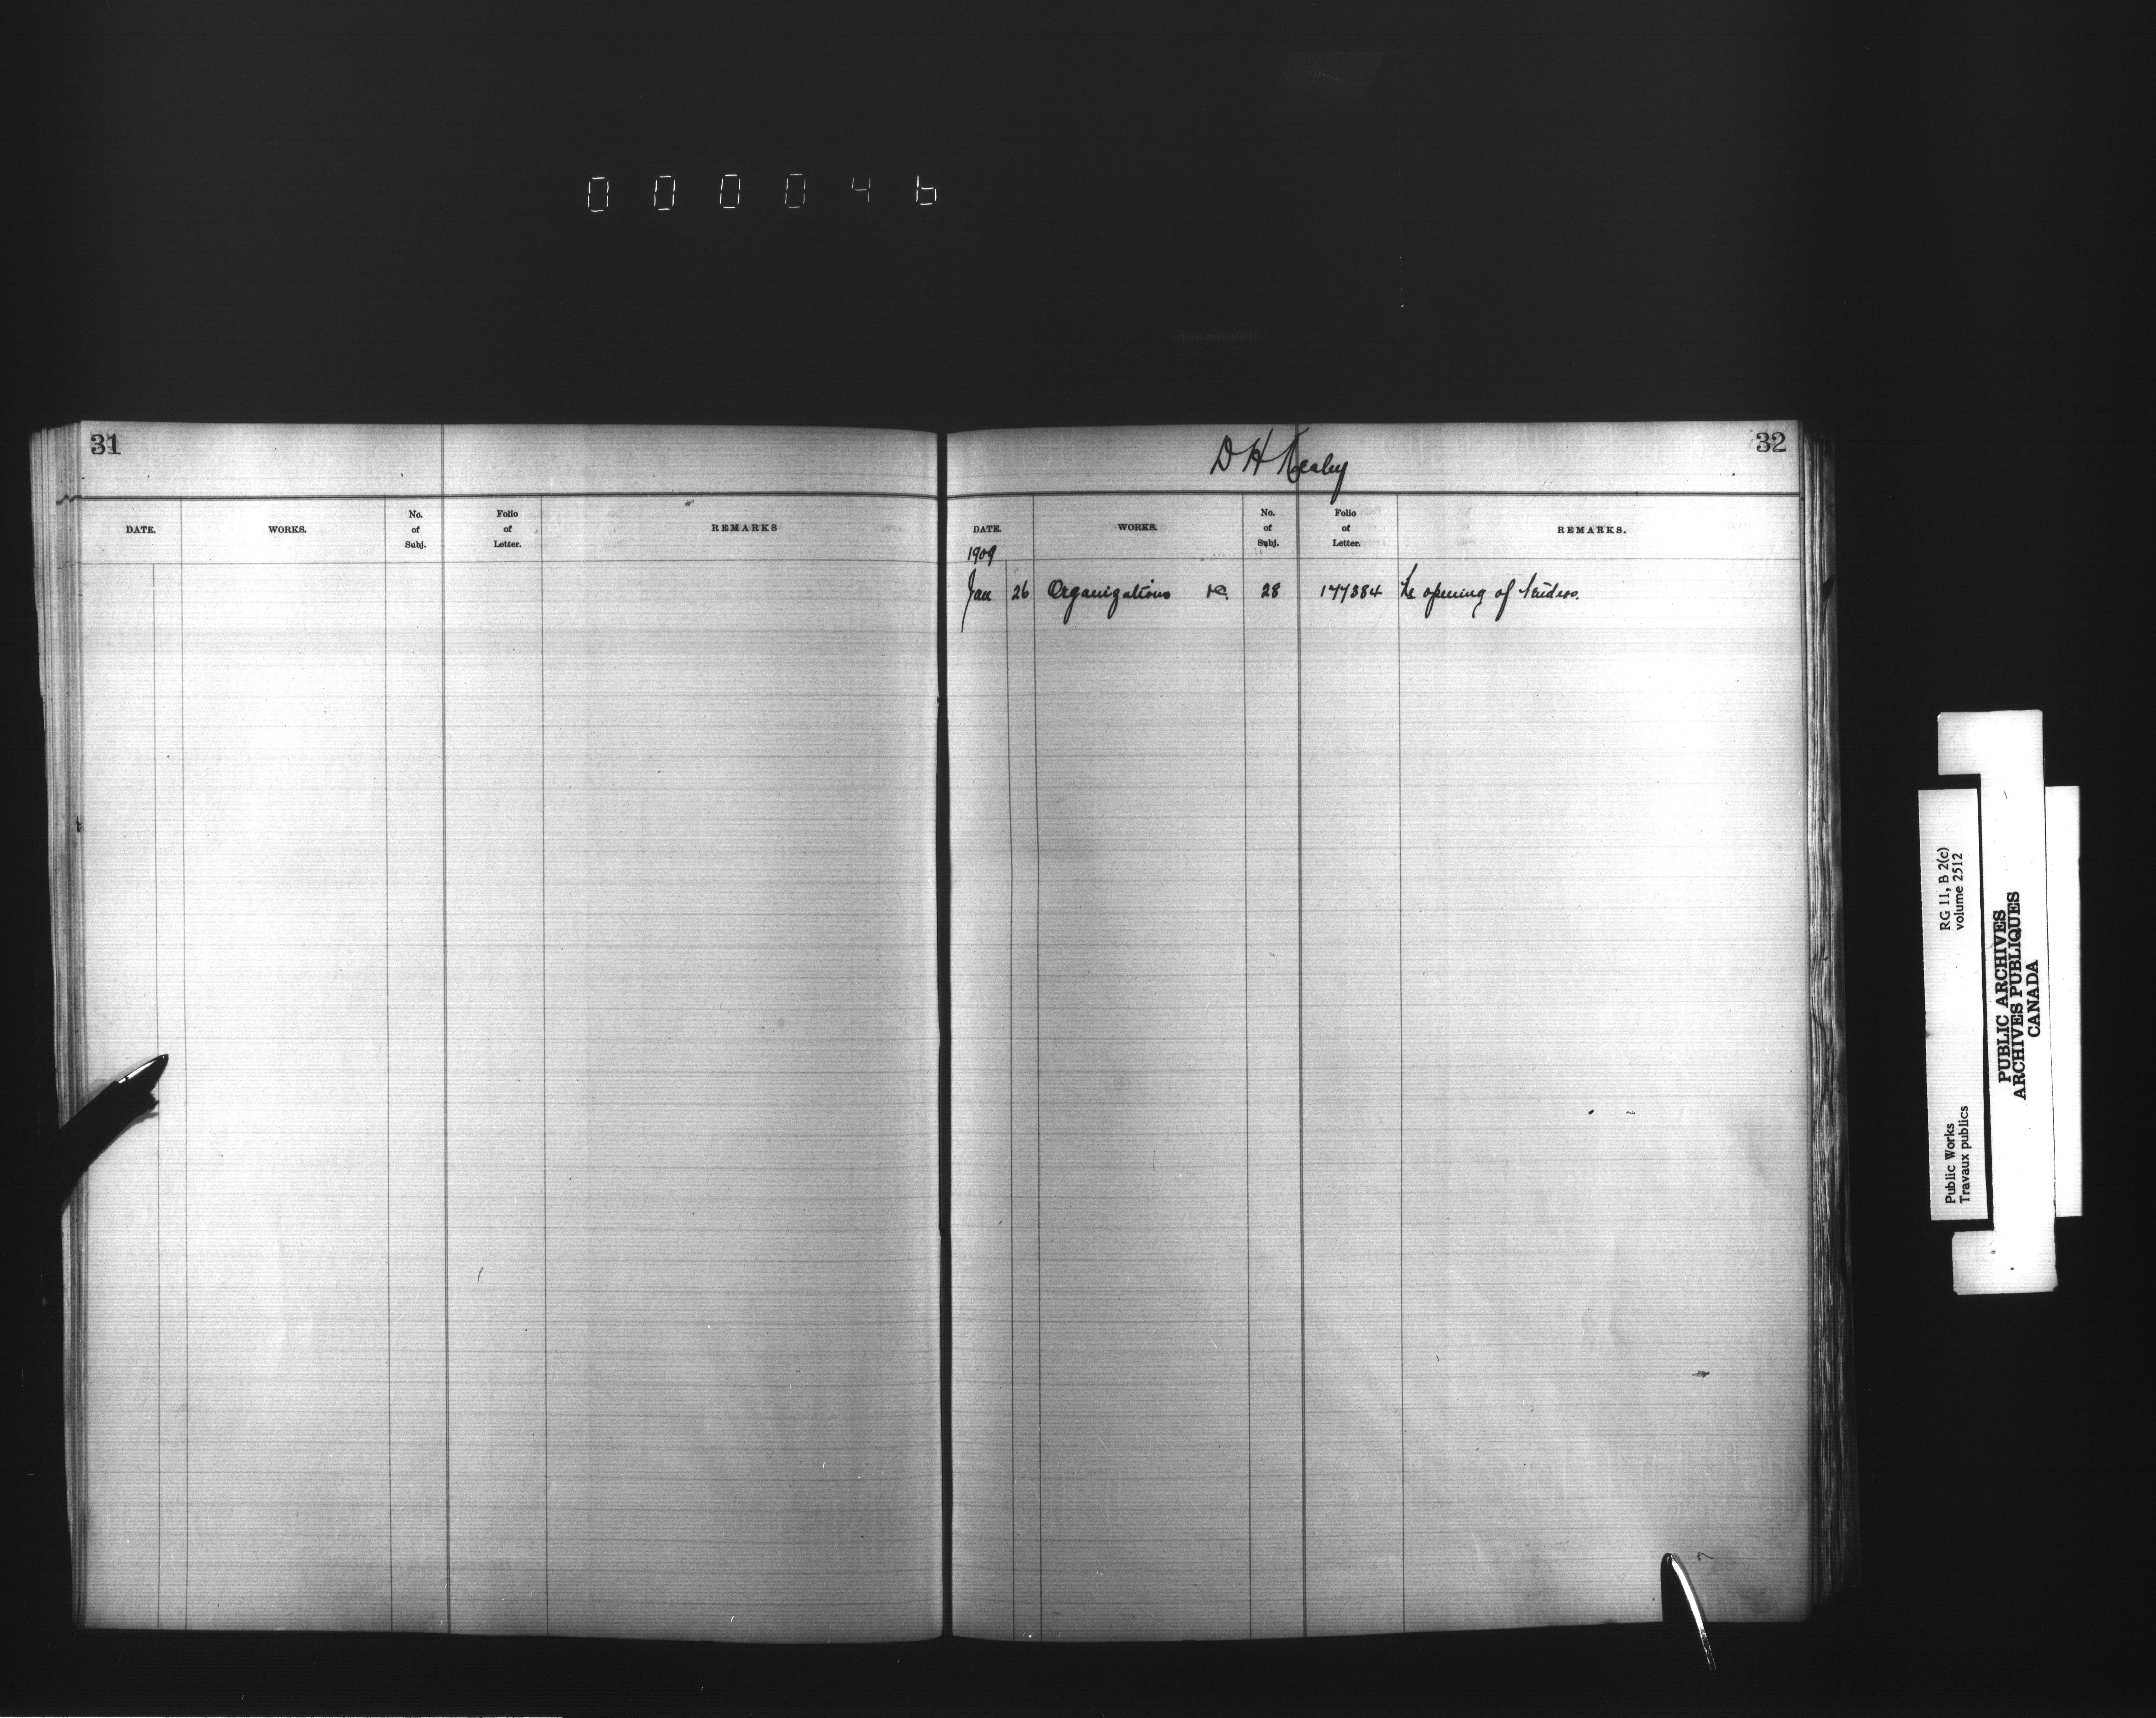 000046
31
DATE. WORKS. No. of Subj. Folio of Letter. REMARKS
32
D H Kealey
DATE. WORKS. No. of Subj. Folio of Letter. REMARKS.
1909
Jan 26 Organizations 28 177384 Re opening of tenders.
Public Works RG 11, B 2(c)
Travaux publics volume 2512
PUBLIC ARCHIVES
ARCHIVES PUBLIQUES
CANADA